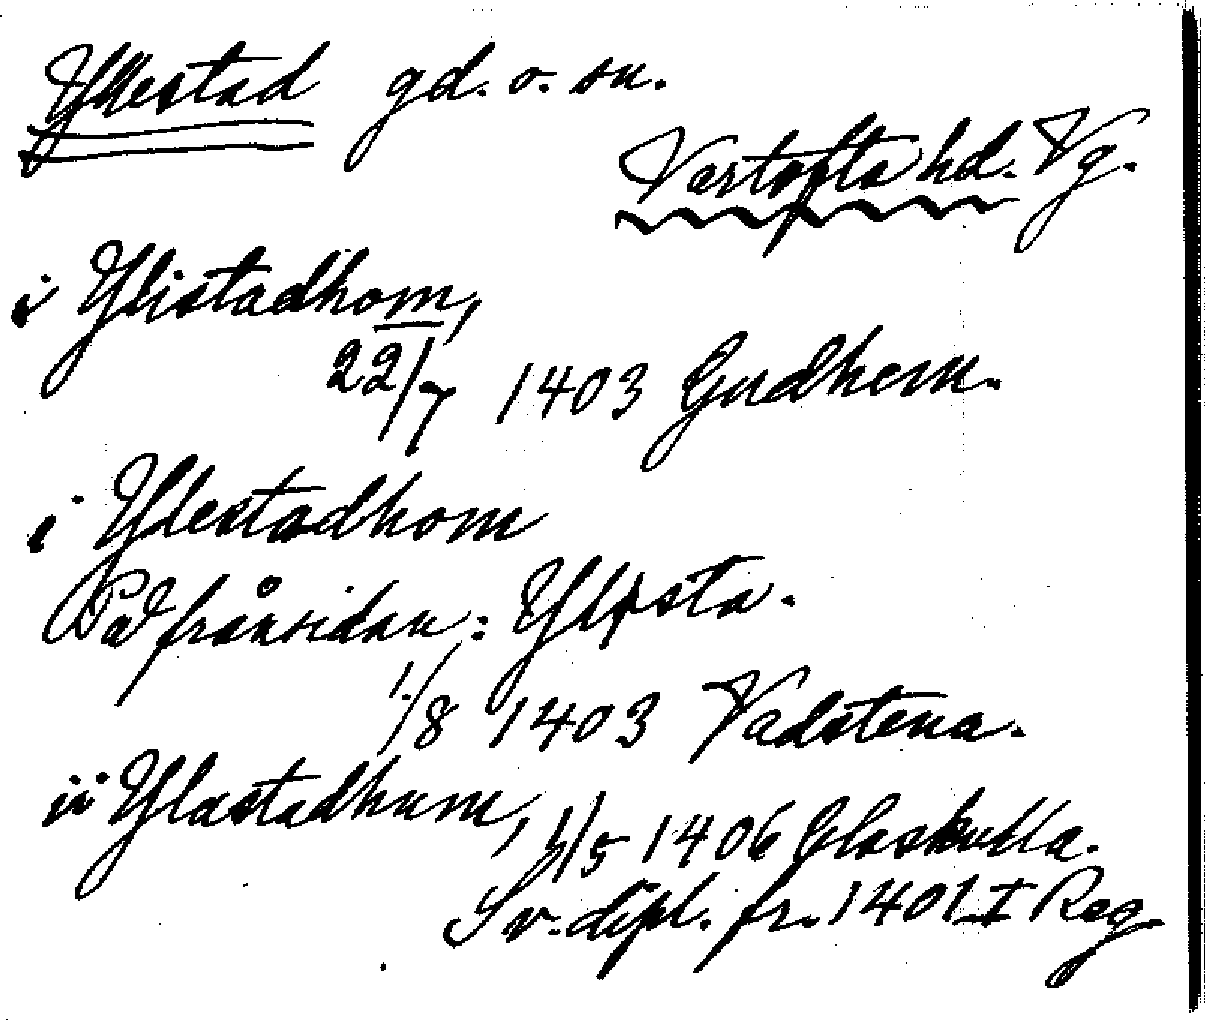 Yllestad gd. o. sn.
Vartofta hd. Vg.
i Ylistadhom,
22/7 1403 Gudhem.
i Ylestadhom
På frånsidan: Ylista.
1/8 1403 Vadstena.
ii Ylastadhum, 1/5 1406 Claskulla.
Sv. dipl. fr. 1401 I Reg.